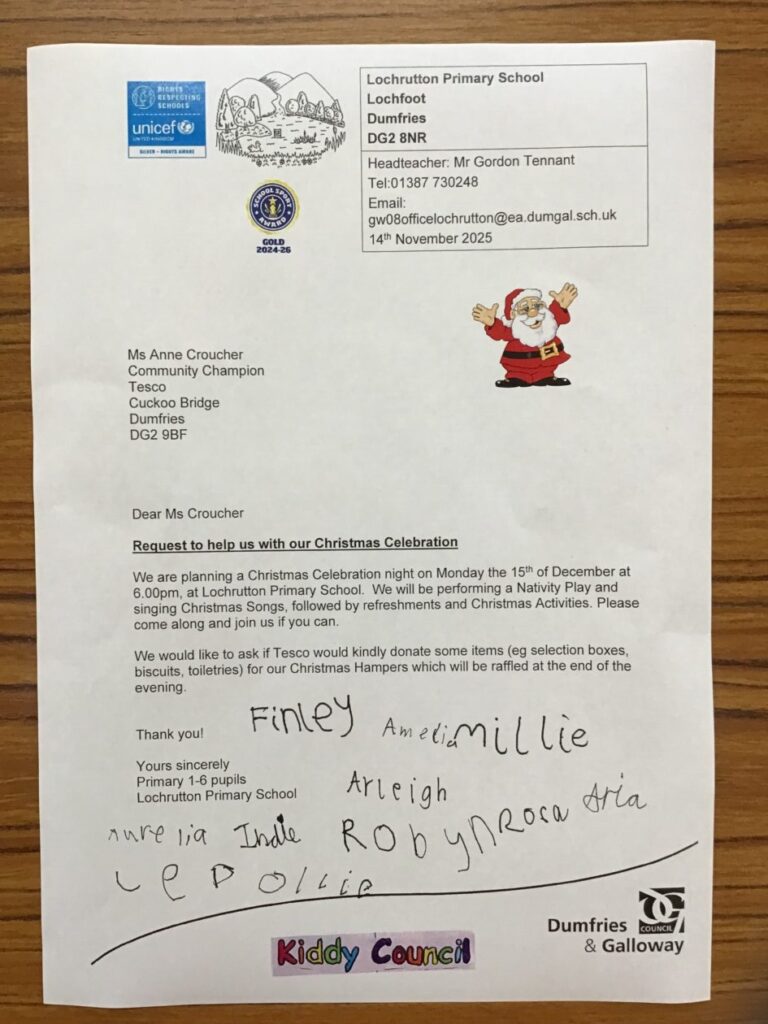 RIGHTS
RESPECTING
SCHOOLS
unicef
UNITED KINGDOM
SILVER – RIGHTS AWARE
SCHOOL SPORT
AWARD
GOLD
2024-26
Lochrutton Primary School
Lochfoot
Dumfries
DG2 8NR
Headteacher: Mr Gordon Tennant
Tel:01387 730248
Email:
gw08officelochrutton@ea.dumgal.sch.uk
14th November 2025
Ms Anne Croucher
Community Champion
Tesco
Cuckoo Bridge
Dumfries
DG2 9BF
Dear Ms Croucher
Request to help us with our Christmas Celebration
We are planning a Christmas Celebration night on Monday the 15th of December at
6.00pm, at Lochrutton Primary School. We will be performing a Nativity Play and
singing Christmas Songs, followed by refreshments and Christmas Activities. Please
come along and join us if you can.
We would like to ask if Tesco would kindly donate some items (eg selection boxes,
biscuits, toiletries) for our Christmas Hampers which will be raffled at the end of the
evening.
Thank you!
Finley Amelia Millie
Yours sincerely
Primary 1-6 pupils
Lochrutton Primary School
Arleigh
Aurelia Indie Robyn Rosa Aria
Ollie
Kiddy Council
Dumfries
& Galloway
COUNCIL